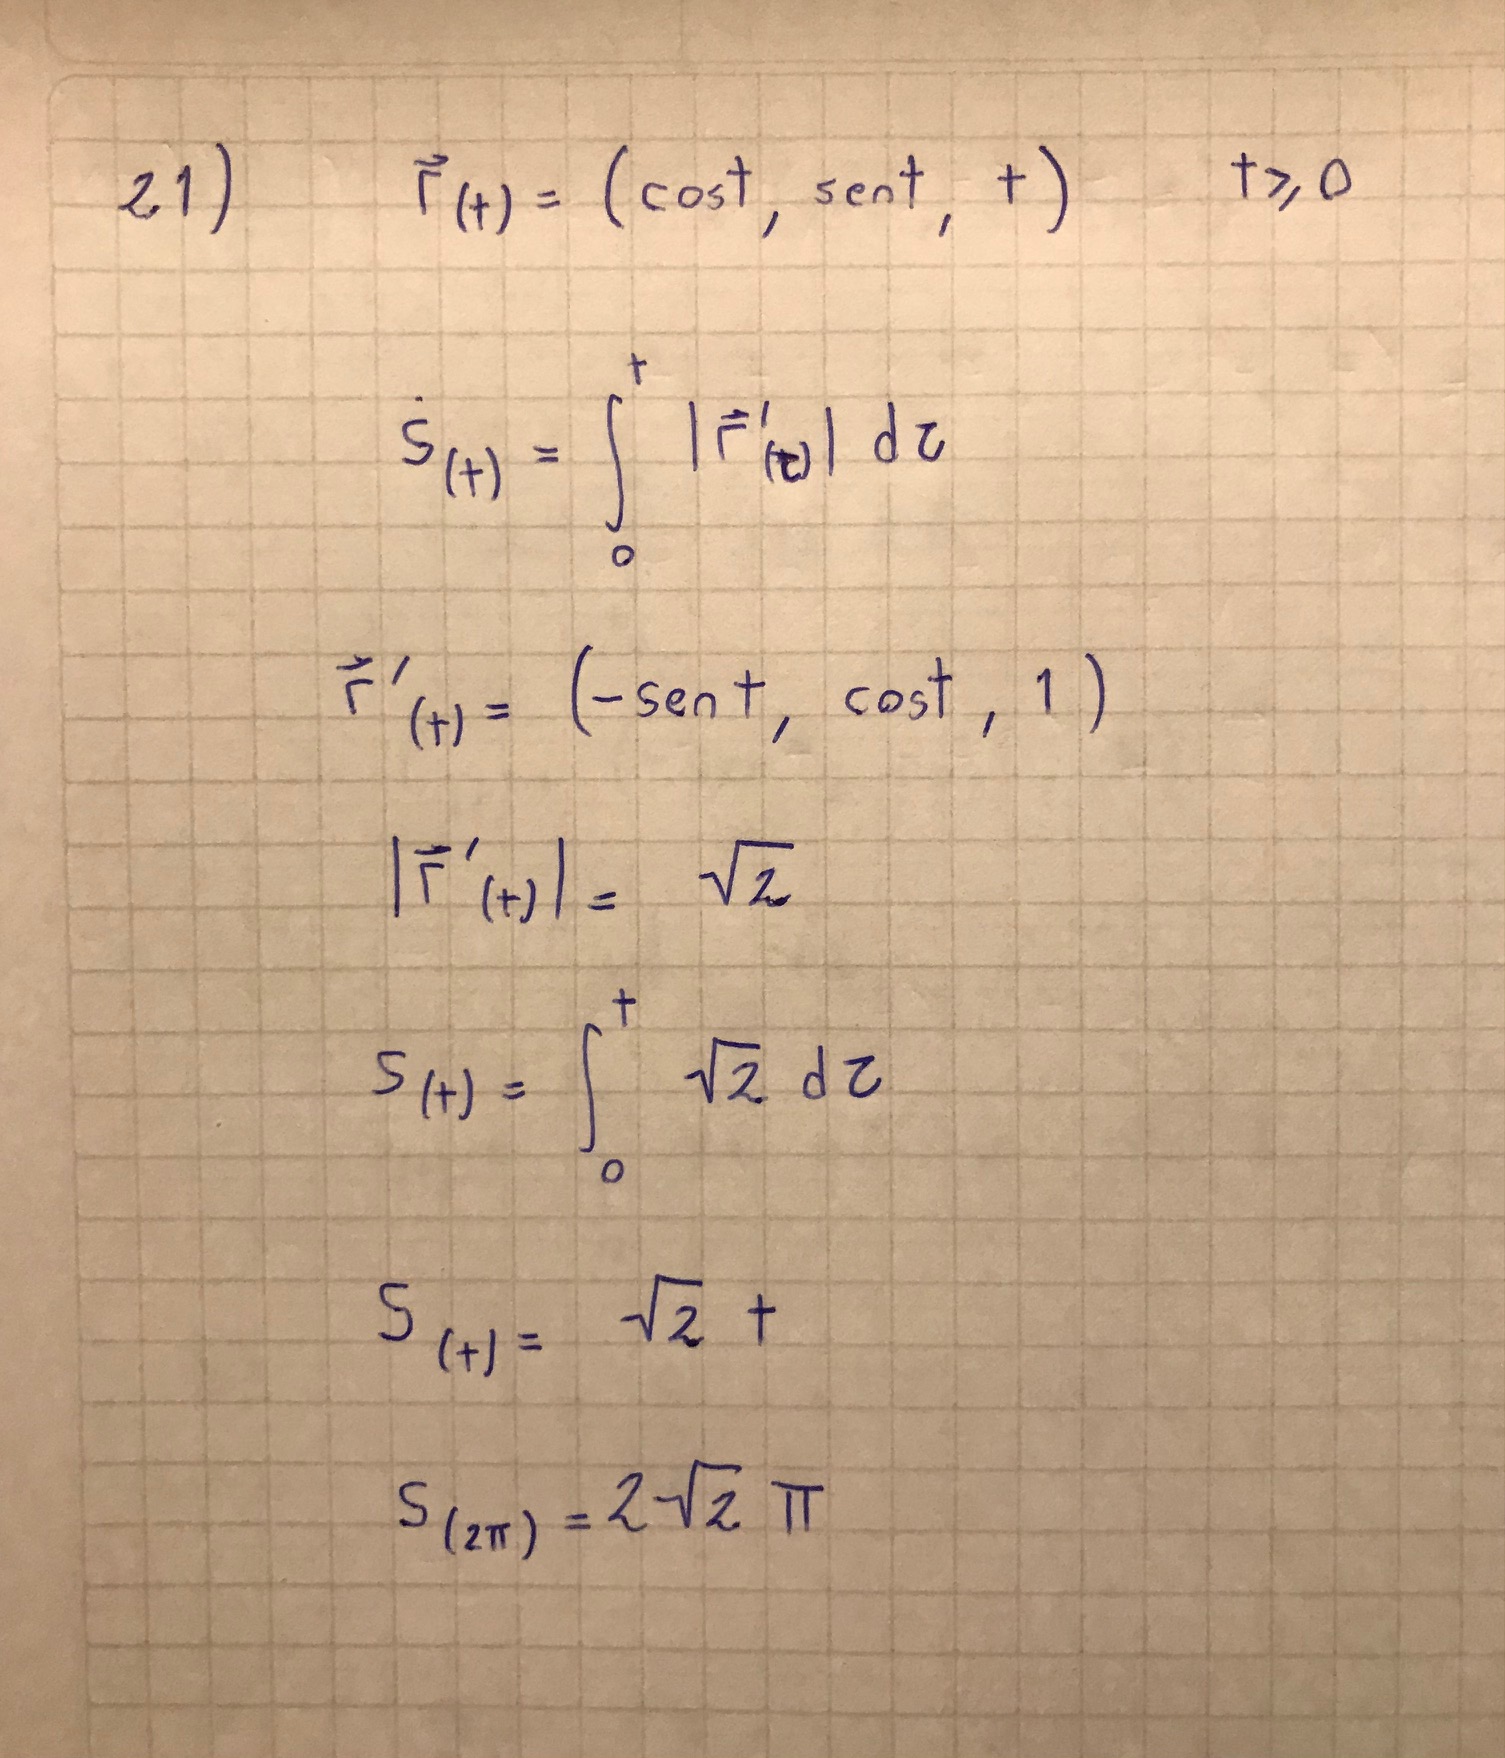 21) r⃗(t) = (cost, sent, t) t⩾0
S(t) = ∫₀ᵗ |r⃗′(τ)| dτ
r⃗′(t) = (-sent, cost, 1)
|r⃗′(t)| = √2
S(t) = ∫₀ᵗ √2 dτ
S(t) = √2 t
S(2π) = 2√2 π